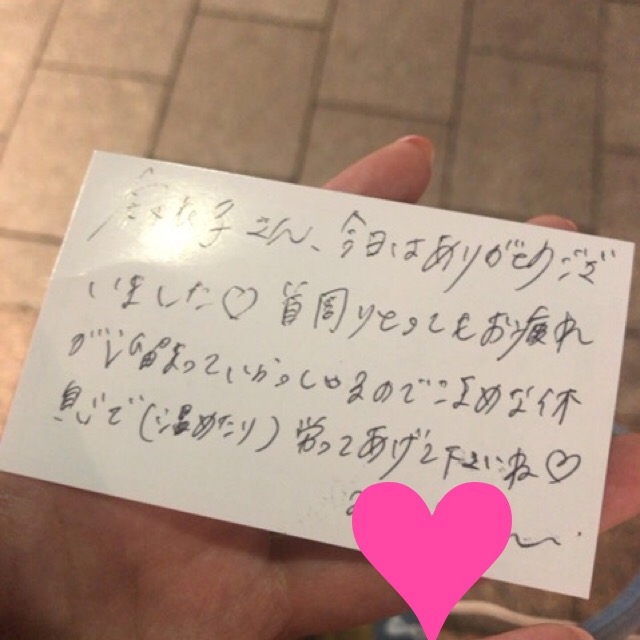 子さん、今日はありがとうござ
いました♡ 首周りとってもお疲れ
が溜まっていらっしゃるのでこまめな休
息で(温めたり)労ってあげて下さいね♡